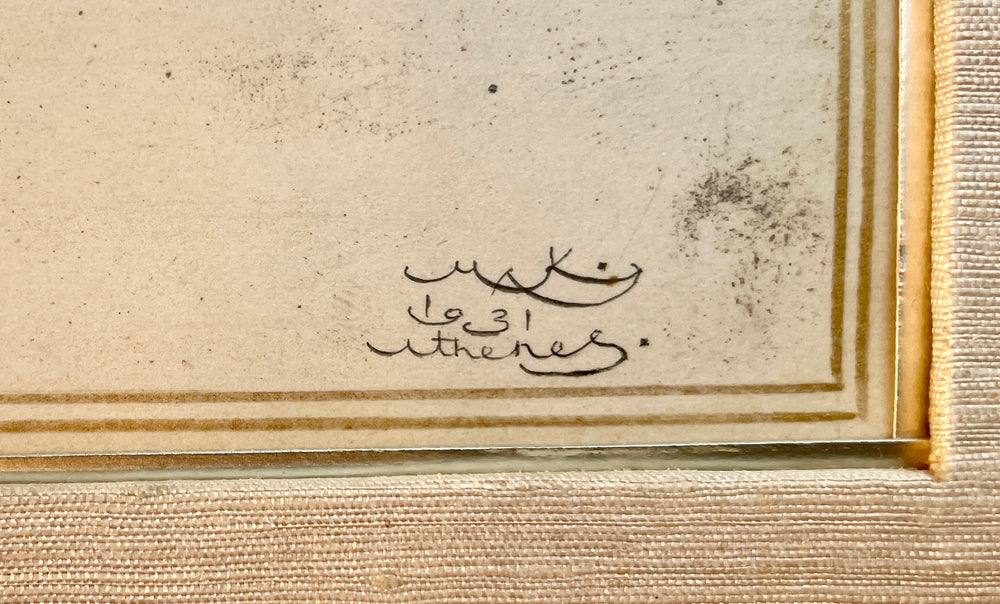 Maks
1931
Athenes.